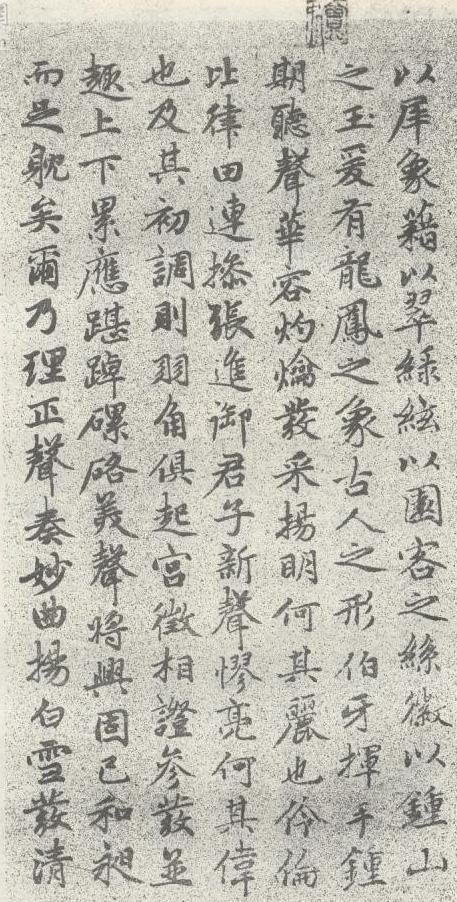 以犀象藉以翠綠絃以園客之絲徽以鍾山
之玉爰有龍鳳之象古人之形伯牙揮手鍾
期聽聲華容灼爚發采揚明何其麗也伶倫
比律田連操張進御君子新聲憀亮何其偉
也及其初調則羽角俱起宮徵相證參發並
趣上下累應踸踔磥硌美聲將興固已和昶
而足躭矣爾乃理正聲奏妙曲揚白雪發清